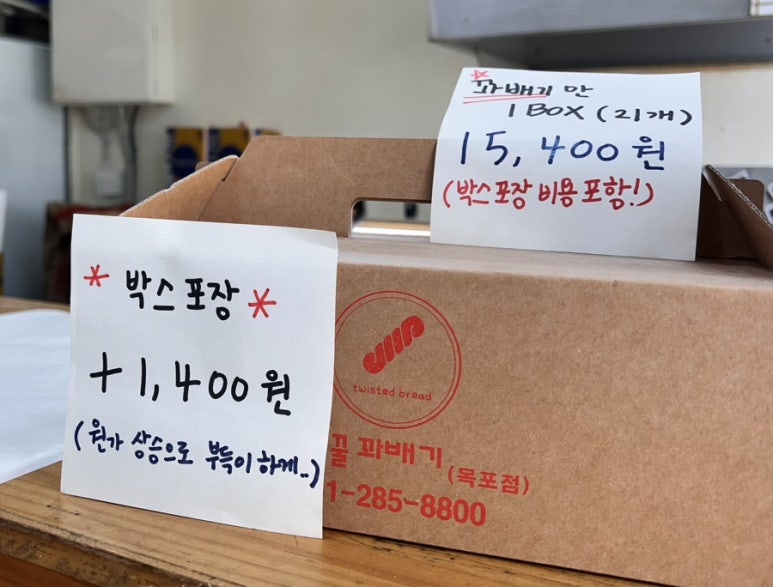 * 박스 포장 *
+1,400원
(원가 상승으로 부득이하게..)
*꽈배기만
1 BOX (21개)
15,400원
(박스포장 비용 포함!)
twisted bread
꿀꽈배기 (목포점)
1-285-8800